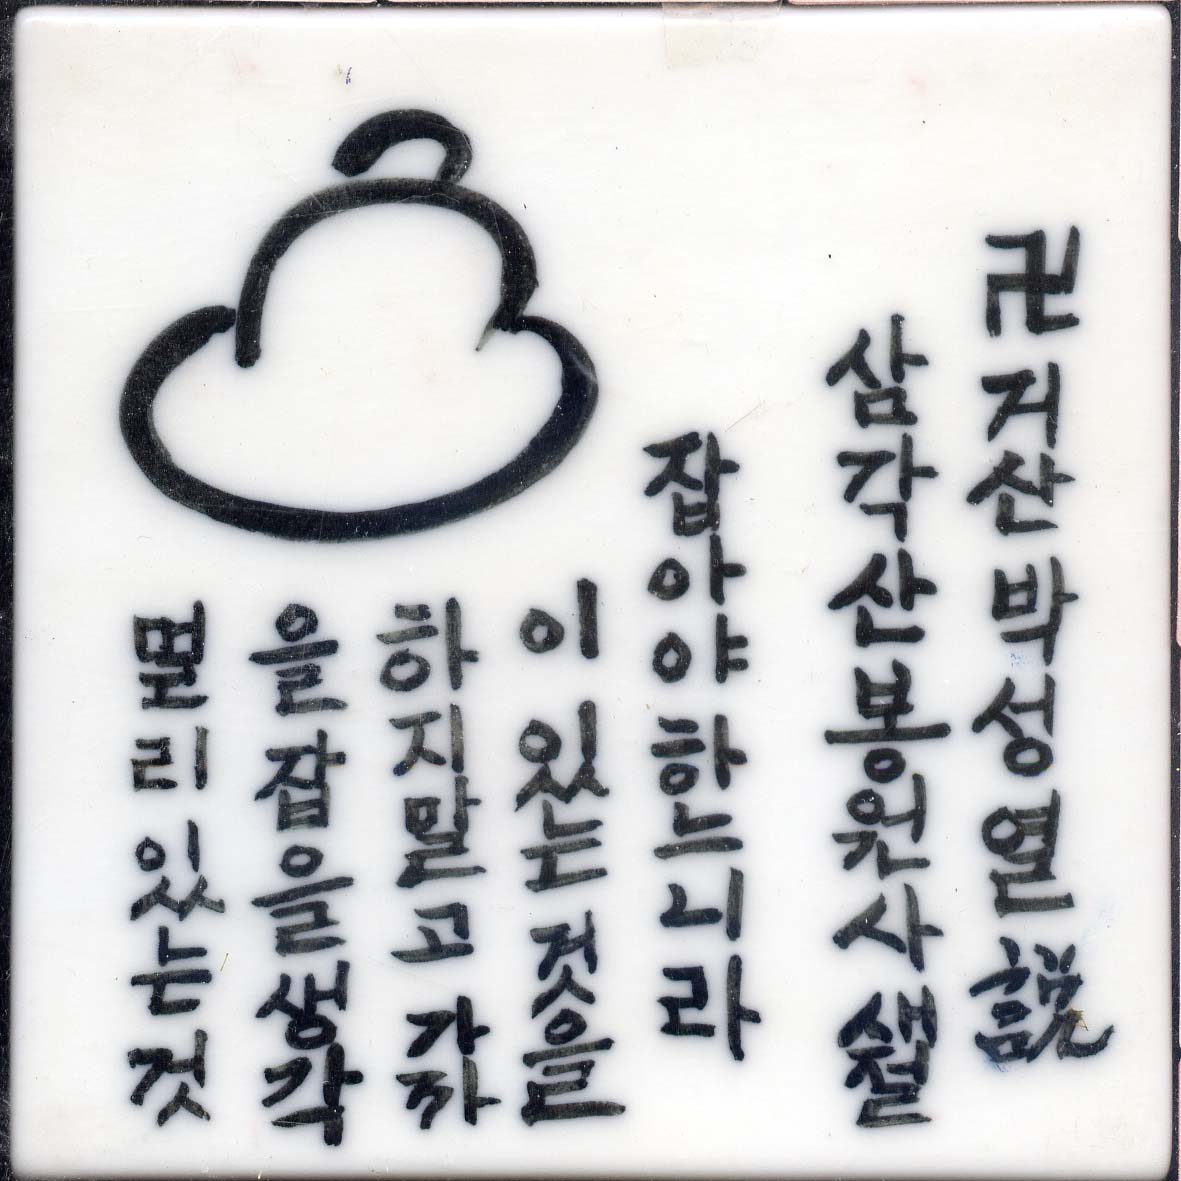 멀리 있는 것
을 잡을 생각
하지말고 가까
이 있는 것을
잡아야 한느니라
삼각산 봉원사 새절
卍 거산 박성열 説